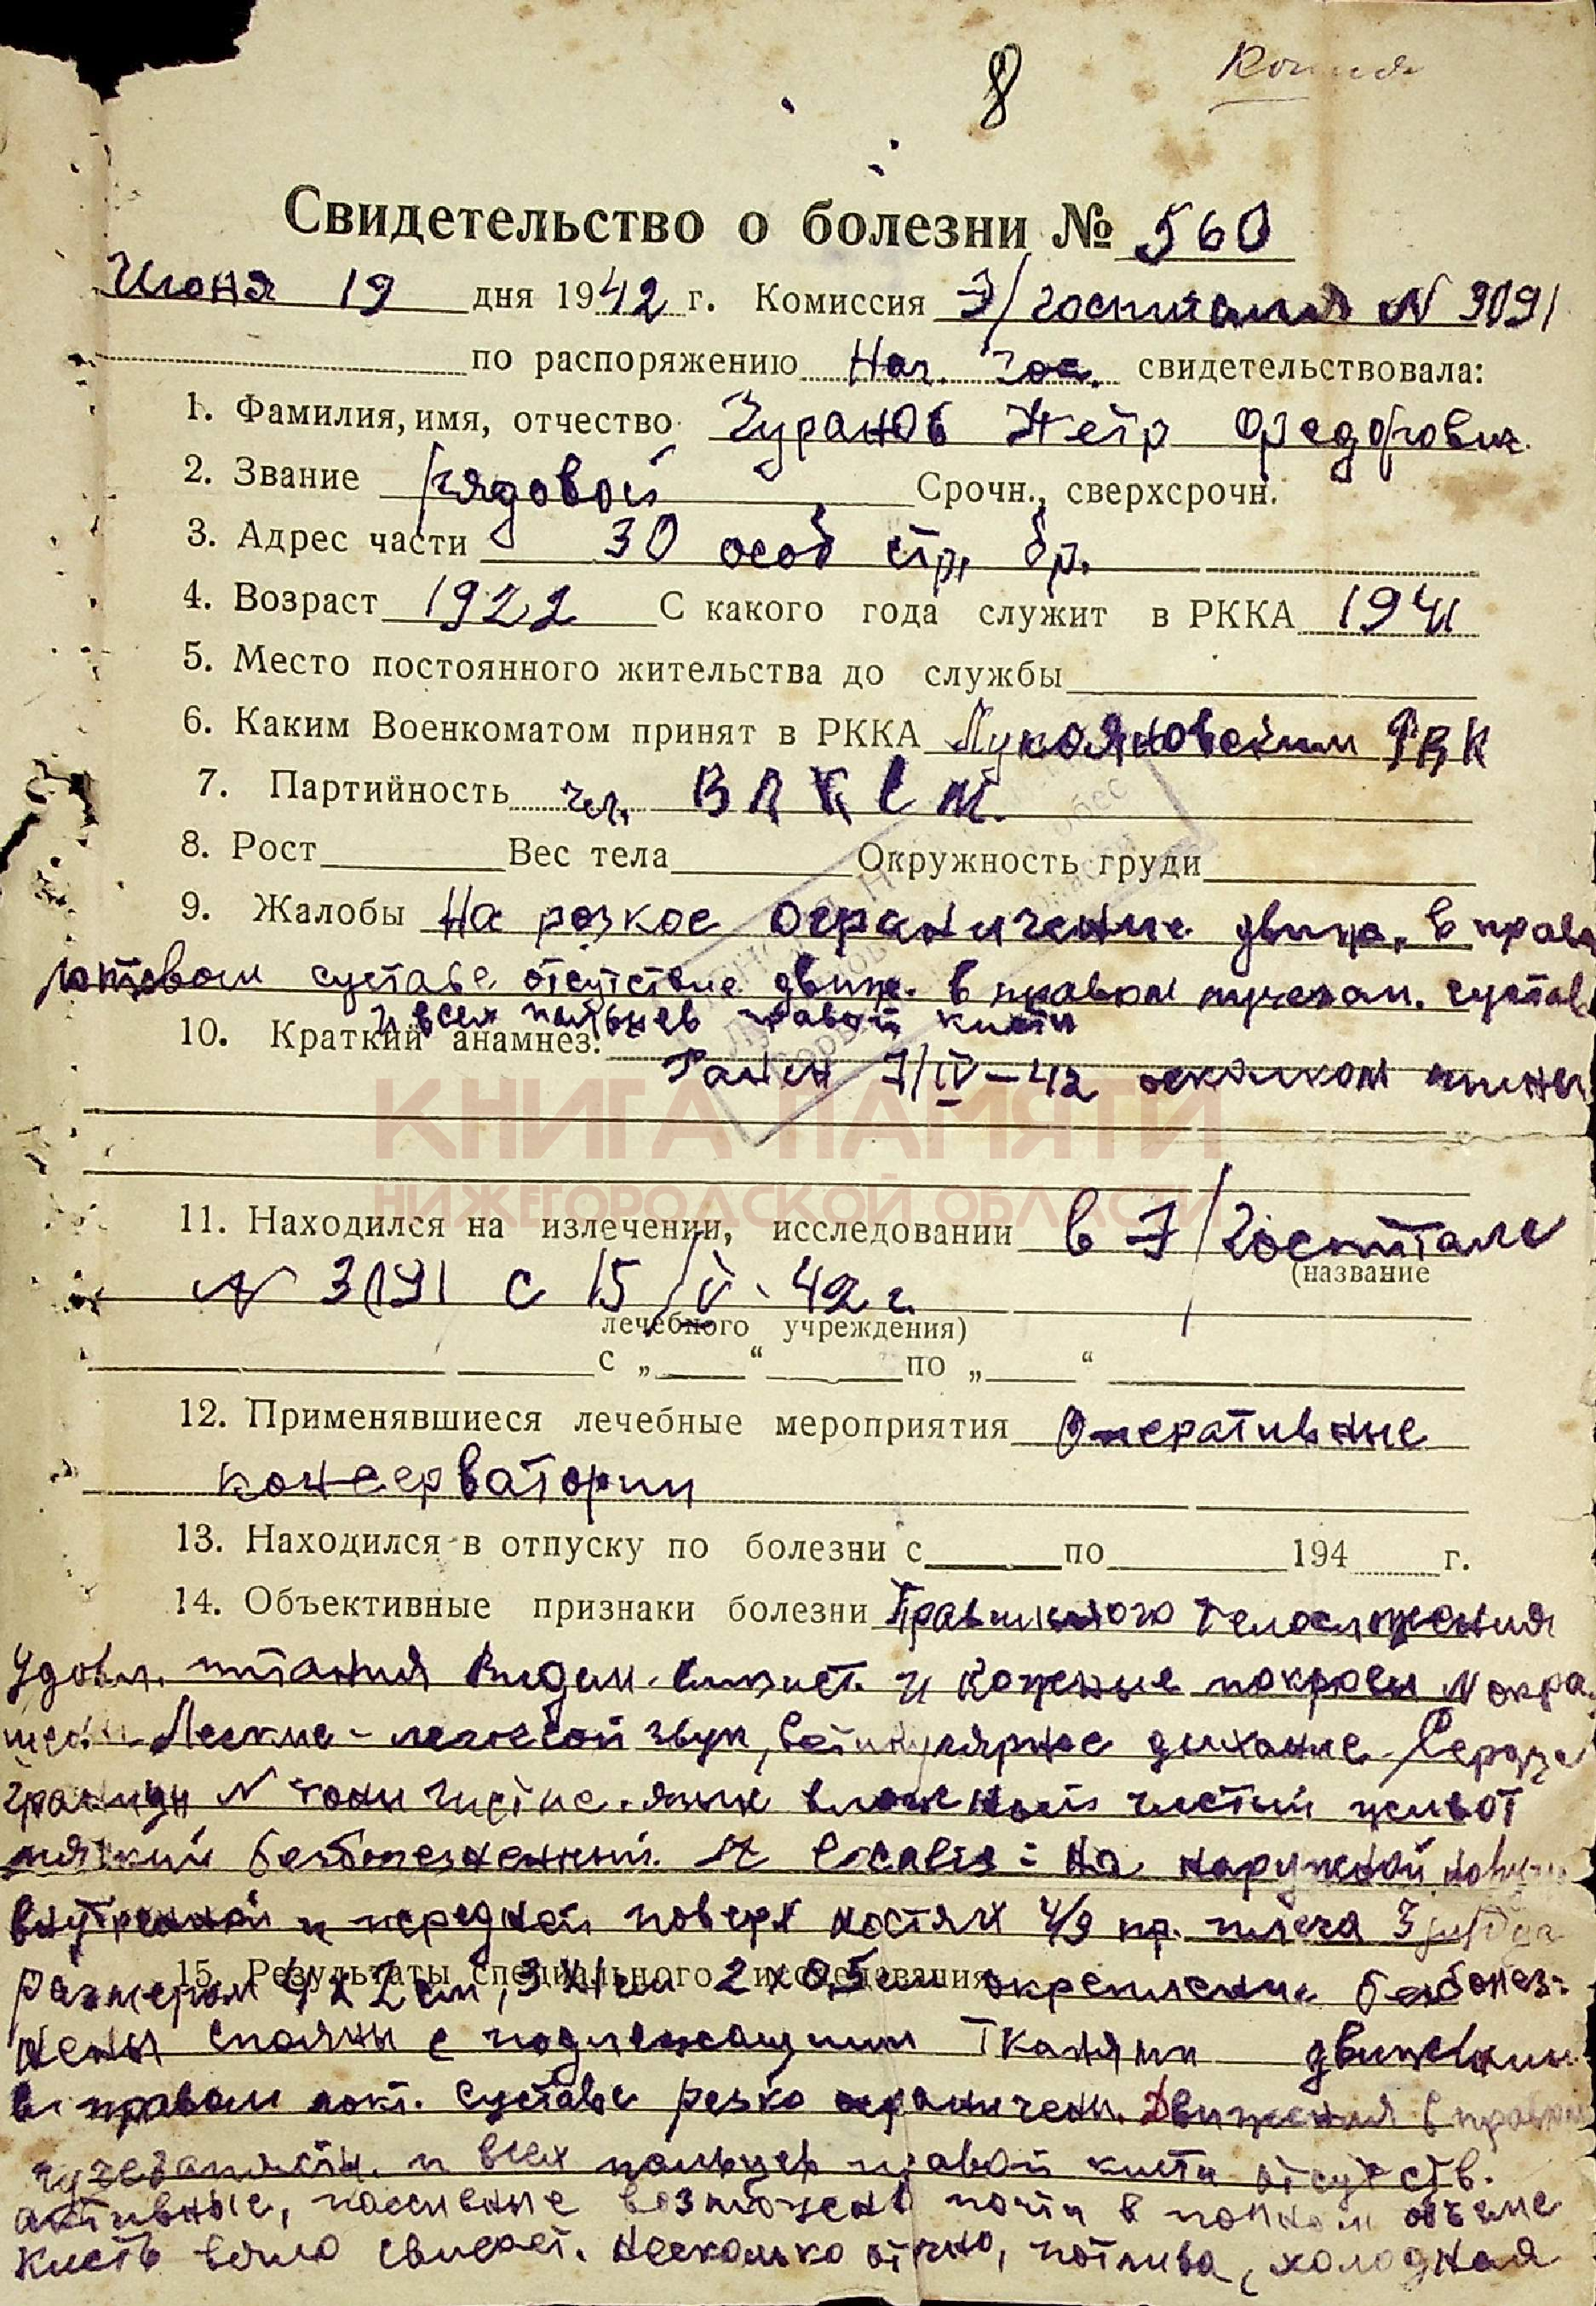 8
Копия
Свидетельство о болезни № 560
Июня 19 дня 1942 г. Комиссия Э/госпиталя N 3091
по распоряжению Нач. Гос. свидетельствовала:
1. Фамилия, имя, отчество Чуранов Петр Федорович
2. Звание рядовой Срочн., сверхсрочн.
3. Адрес части 30 особ стр. бр.
4. Возраст 1922 С какого года служит в РККА 1941
5. Место постоянного жительства до службы
6. Каким Военкоматом принят в РККА Лукояновским РВК
7. Партийность чл. ВЛКСМ.
8. Рост Вес тела Окружность груди
9. Жалобы На резкое ограничение движ. в право
локтевом суставе отсутствие движ. в правом лучезап. сустав
и всех пальцев правой кисти
10. Краткий анамнез:
Ранен 7/IV-42 осколком мины
КНИГА ПАМЯТИ
НИЖЕГОРОДСКОЙ ОБЛАСТИ
11. Находился на излечении, исследовании в Э/Госпитале
(название
N 3091 с 15/V. 42 г.
лечебного учреждения)
с „ “ по „ “
12. Применявшиеся лечебные мероприятия Оперативные
консерватории
13. Находился в отпуску по болезни с по 194 г.
14. Объективные признаки болезни Правильного телосложения
Удовл. питания Видим. слизист. и кожные покровы N окра
шены Легкие - легочной звук, везикулярное дыхание Сердце
границы N тоны чистые. язык влажный чистый живот
мягкий безболезненный. St localis: На наружной
внутренной и передней поверхностях н/3 пр. плеча 3 рубца
размером 4х2 см, 3х1 см 2х0,5 см окрепшие безболез-
15. Результаты специального исследования
нены спаяны с подлежащими тканями движения
в правом локт. суставе резко ограничены. Движения в правом
лучезапястн. и всех пальцев правой кисти отсутств.
активные, пассивные возможены почти в полном объеме
Кисть вяло свисает. Несколько отечна, потлива, холодная